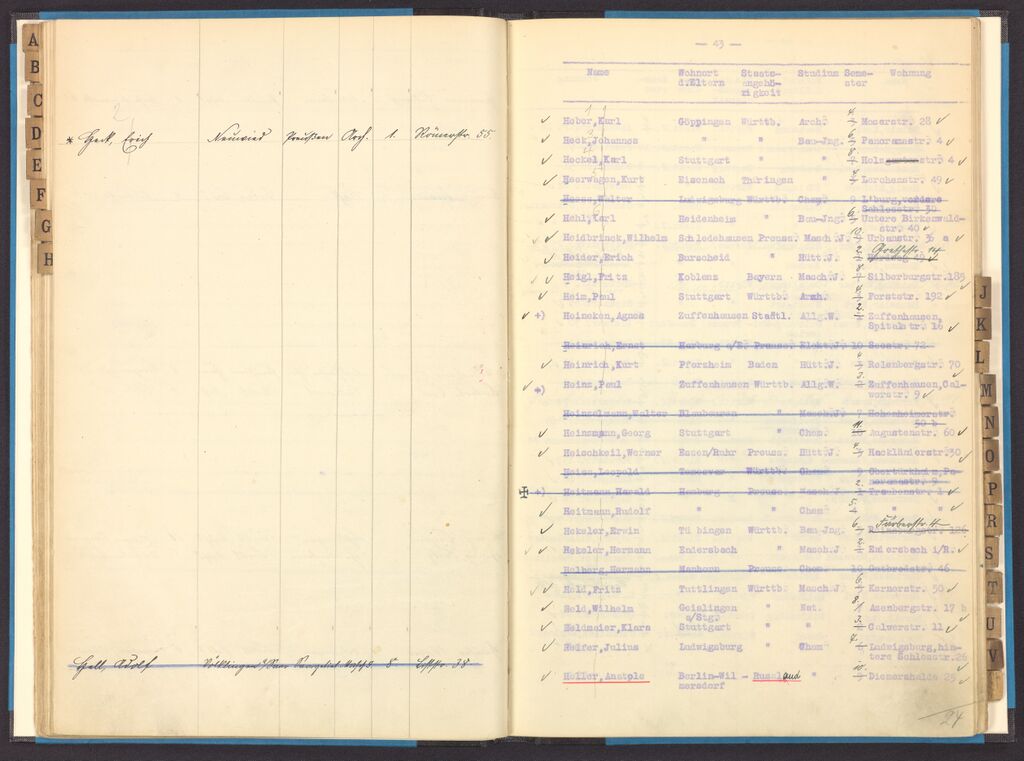 A
B
C
D
E
F
G
H
* Heck, Erich Neuwied Preußen Arch. 1. Römerstr. 55
Hell, Adolf Völklingen a/Saar 8
— 43 —
Name Wohnort Staats- Studium Seme- Wohnung
d.Eltern angehö- ster
rigkeit
Hebor,Karl Göppingen Württb. Arch. 4. Moserstr. 28
Heck,Johannes " " Bau-Jng. 6. Panoramastr. 4
Heckel,Karl Stuttgart " " 8. Holzgartenstr. 4
Heerwagen,Kurt Eisenach Thüringen " Lerchenstr. 49
Heess,Walter Ludwigsburg Württb. Chem. 9 L'burg,vordere
Schlosstr. 30
Hehl,Karl Heidenheim " Bau-Jng. 6. Untere Birkenwald-
str. 40
Heidbrinck,Wilhelm Schledehausen Preuss. Masch.J. 10. Urbanstr. 36 a
Heider,Erich Burscheid " Hütt.J. 2. Goethestr. 14
Heigl,Fritz Koblenz Bayern Masch.J. 8. Silberburgstr.185
Heim,Paul Stuttgart Württb. Arch. 4. Forststr. 192
+) Heineken,Agnes Zuffenhausen Staatl. Allg.W. 2. Zuffenhausen,
Spitalstr. 16
Heinrich,Ernst Harburg a/E. Preuss. Elekt.J. 10 Seestr. 72
Heinrich,Kurt Pforzheim Baden Hütt.J. 4. Relenbergstr. 70
+) Heinz,Paul Zuffenhausen Württb. Allg.W. 3. Zuffenhausen,Cal-
werstr. 9
Heinzelmann,Walter Blaubeuren " Masch.J. 7 Hohenheimerstr.
50 b
Heinzmann,Georg Stuttgart " Chem. 11. Augustenstr. 60
Heischkeil,Werner Essen/Ruhr Preuss. Hütt.J. 4. Hackländerstr.30
Heiss,Leopold Württb. Chem. 9 Obertürkheim,Pa-
noramastr. 9
+) Heitmann,Harald Hamburg Preuss. Masch.J. 2. Traubenstr. 1
Heitmann,Rudolf " " Chem. 5. " "
Hekeler,Erwin Tübingen Württb. Bau-Jng. 6. Färberstr. 4.
Hekeler,Hermann Endersbach " Masch.J. 2. Endersbach i/R.
Helberg,Hermann Preuss. Chem. 10 Gutbrodstr. 46
Held,Fritz Tuttlingen Württb. Masch.J. 6. Kernerstr. 50
Held,Wilhelm Geislingen " Nat. 8. Azenbergstr. 17 b
a/Stg.
Heldmaier,Klara Stuttgart " " 3. Calwerstr. 11
Helfer,Julius Ludwigsburg " Chem 4. Ludwigsburg,hin-
tere Schlosstr.26
Heller,Anatole Berlin-Wil- Russland " 10. Diemershalde 25
mersdorf
24
J
K
L
M
N
O
P
R
S
T
U
V